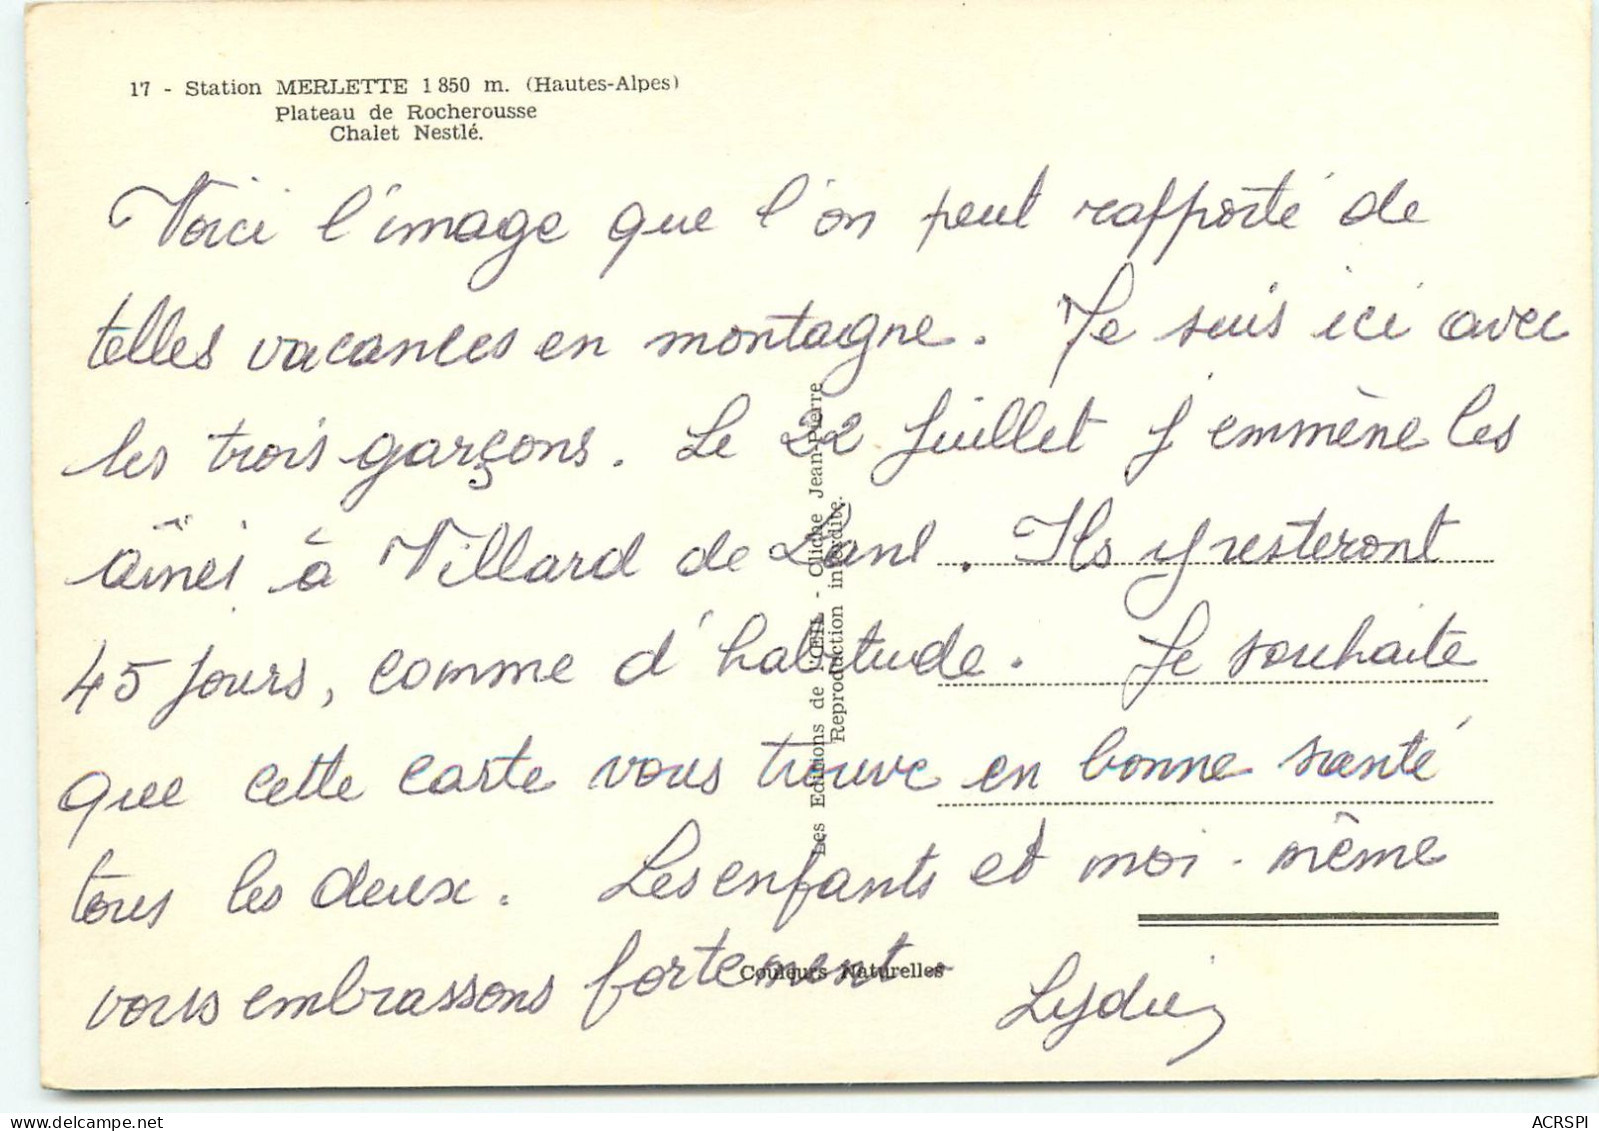 17 - Station MERLETTE 1 850 m. (Hautes-Alpes)
Plateau de Rocherousse
Chalet Nestlé.
Voici l'image que l'on peut rapporté de
telles vacances en montagne. Je suis ici avec
les trois garçons. Le 22 Juillet j'emmène les
aînés à Villard de Lans. Ils y resteront
45 jours, comme d'habitude. Je souhaite
que cette carte vous trouve en bonne santé
tous les deux. Les enfants et moi-même
vous embrassons fortement
Lydie
Les Editions de l'ŒIL - Cliché Jean-Pierre
Reproduction interdite.
Couleurs Naturelles
ACRSPI